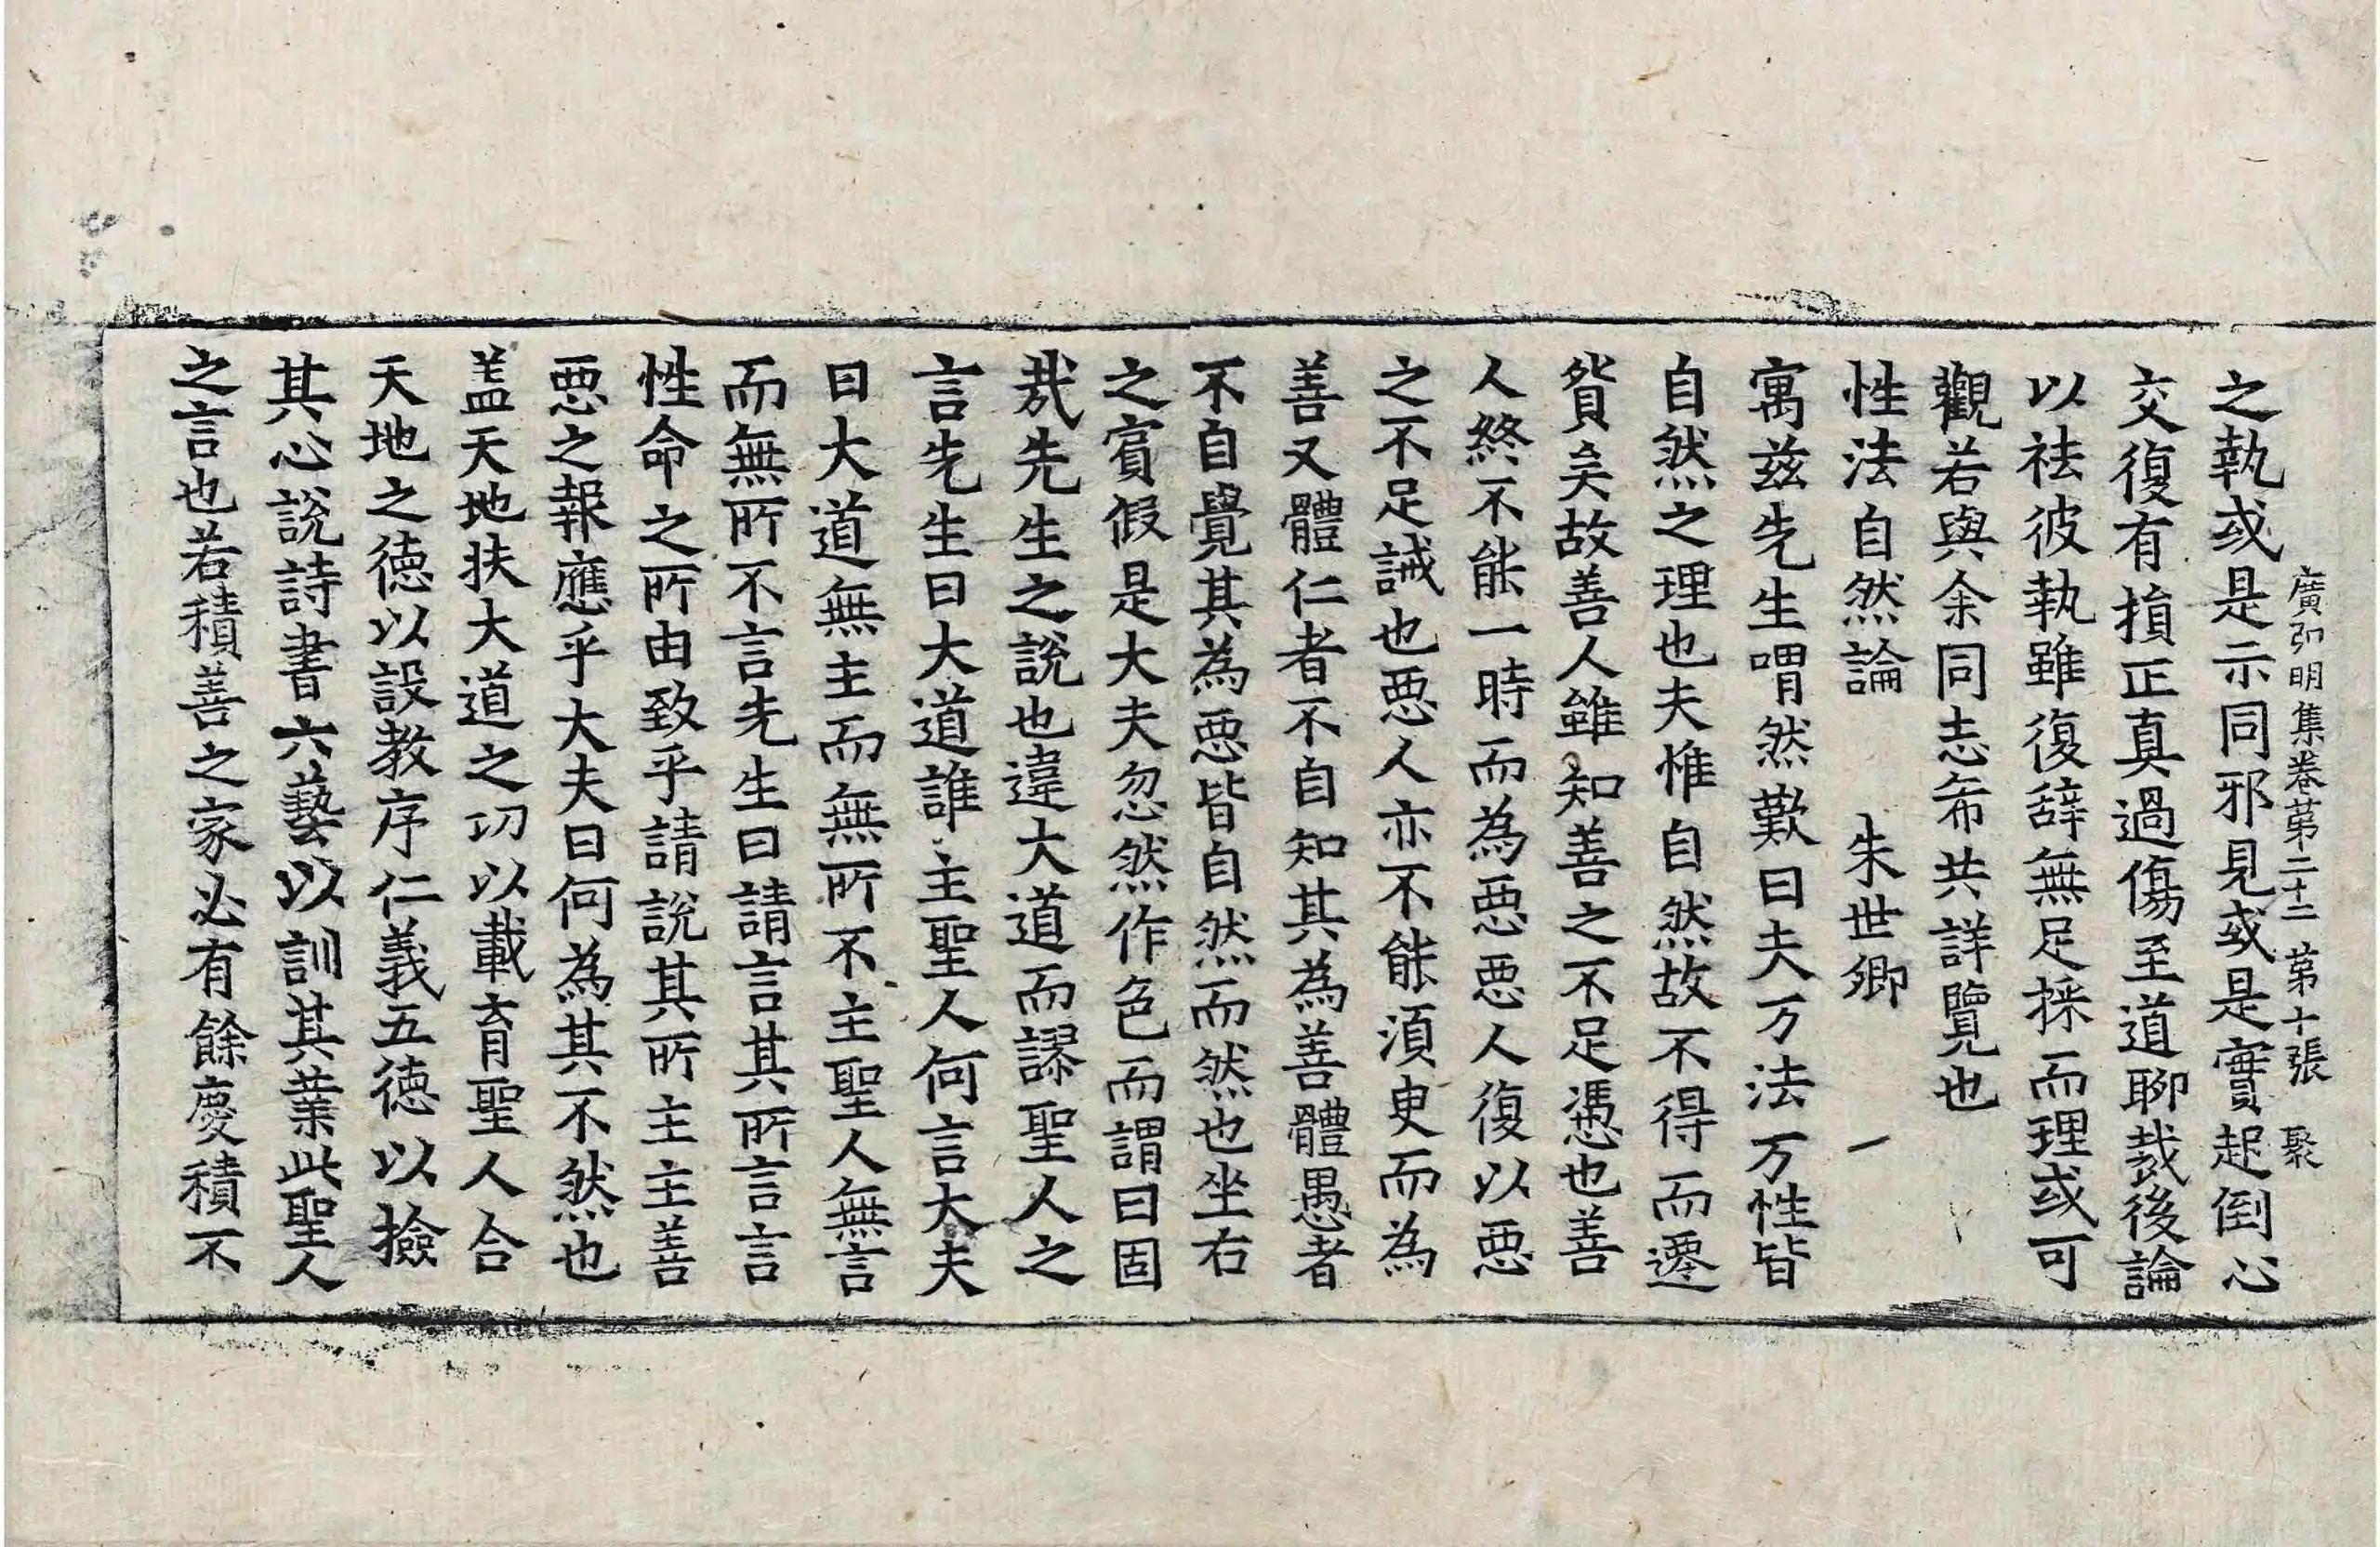 廣弘明集卷第二十二　第十張　聚
之執或是示同邪見或是實起倒心
交復有損正真過傷至道聊裁後論
以祛彼執雖復辞無足採而理或可
觀若與余同志希共詳覽也
性法自然論　朱世卿
寓兹先生喟然歎曰夫万法万性皆
自然之理也夫惟自然故不得而遷
貿矣故善人雖知善之不足憑也善
人終不能一時而為惡惡人復以惡
之不足誡也惡人亦不能湏臾而為
善又體仁者不自知其為善體愚者
不自覺其為惡皆自然而然也坐右
之賓假是大夫忽然作色而謂曰固
㢤先生之說也違大道而謬聖人之
言先生曰大道誰主聖人何言大夫
曰大道無主而無所不主聖人無言
而無所不言先生曰請言其所言言
性命之所由致乎請說其所主主善
惡之報應乎大夫曰何為其不然也
盖天地扶大道之功以載育聖人合
天地之德以設教序仁義五德以撿
其心說詩書六藝以訓其業此聖人
之言也若積善之家必有餘慶積不